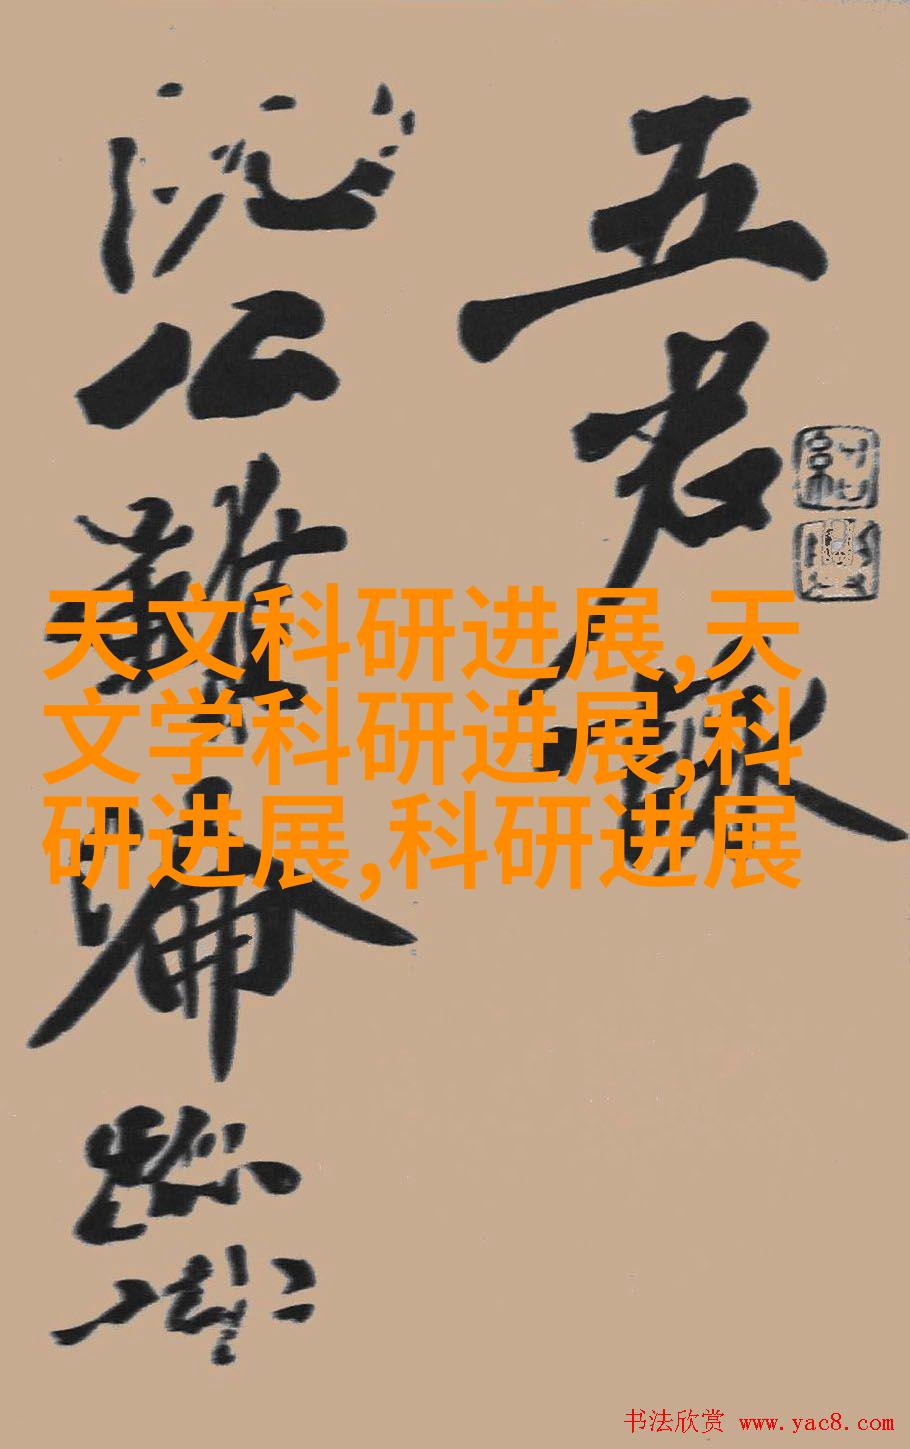 五君詠
阮公雖淪跡
天文科研进展,天
文学科研进展,科
研进展,科研进展
书法欣赏 www.yac8.com